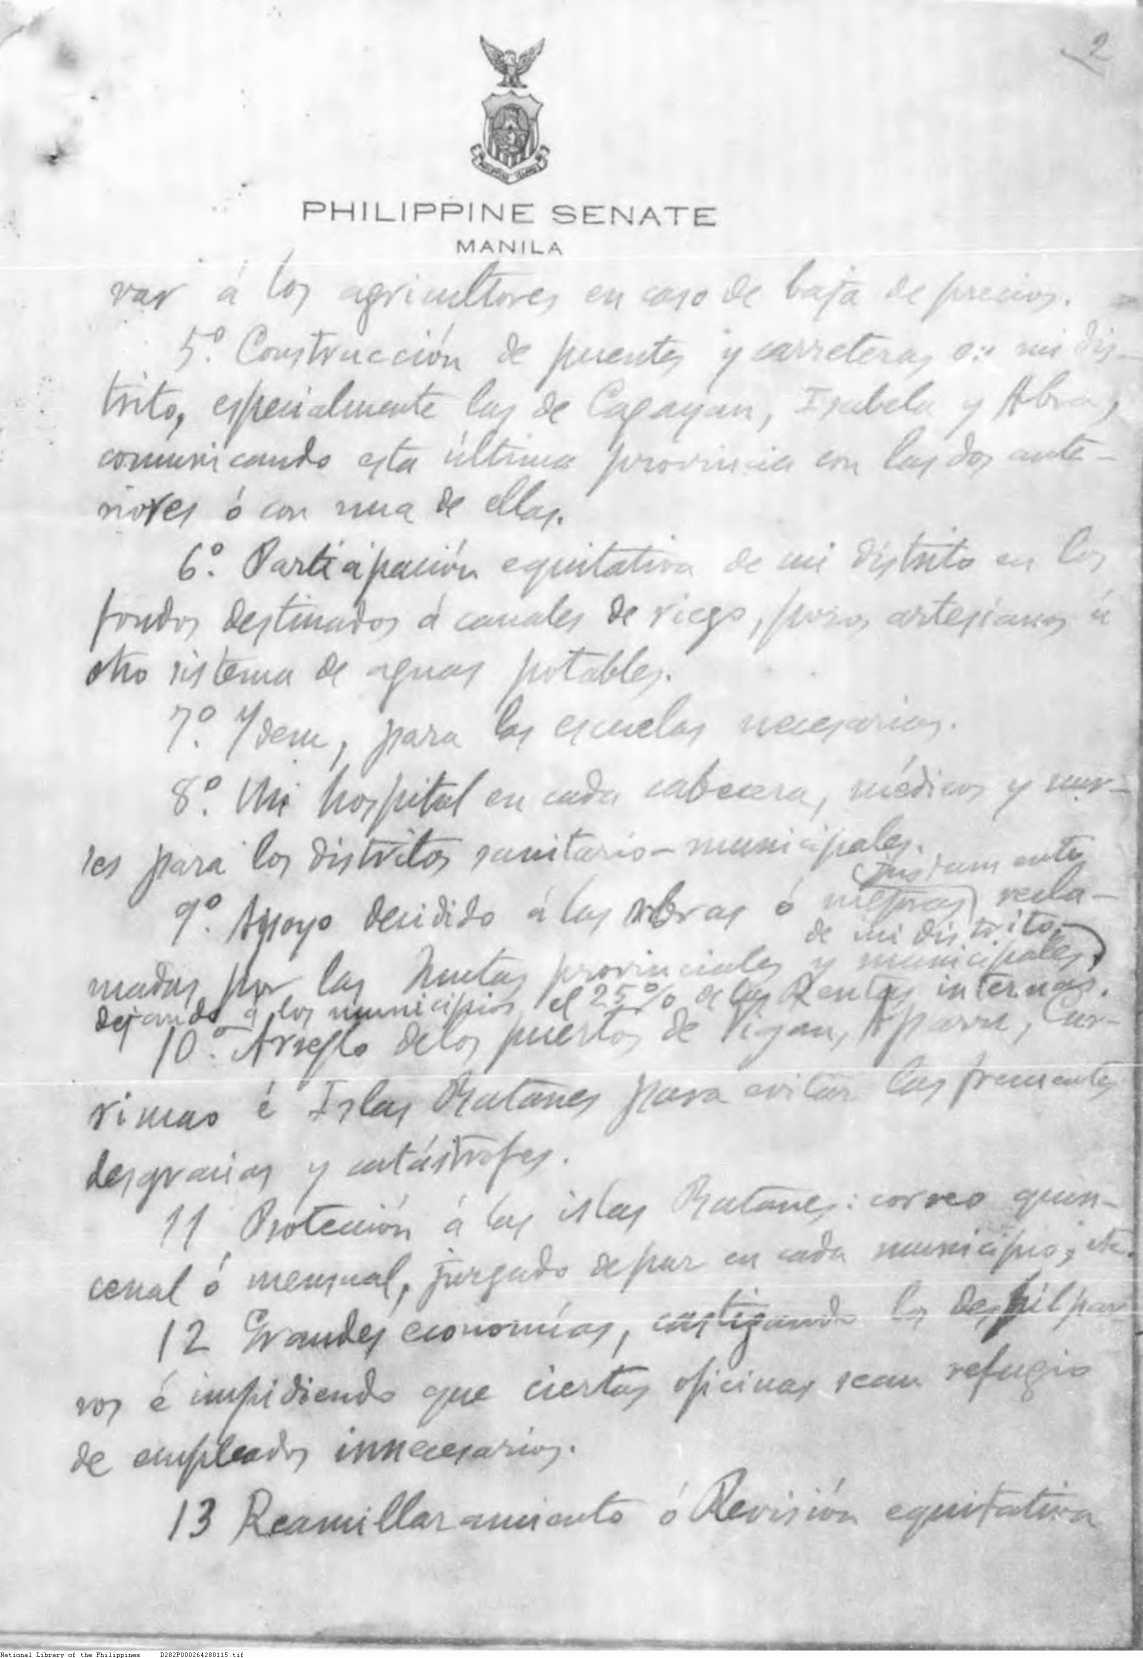 2
PHILIPPINE SENATE
MANILA
var á los agricultores en caso de baja de precios.
5º. Construcción de puentes y carreteras en mi dis-
trito, especialmente las de Cagayan, Isabela y Abra,
comunicando esta última provincia con las dos ante-
riores ó con una de ellas.
6º. Participación equitativa de mi distrito en los
fondos destinados á canales de riego, pozos artesianos ú
otro sistema de aguas potables.
7º. Ydem, para las escuelas necesarias.
8º. Un hospital en cada cabecera, médicos y nur-
ses para los distritos sanitario-municipales.
justamente
9º. Apoyo decidido á las obras ó mejoras recla-
de mi distrito,
madas por las Juntas provinciales y municipales,
dejando á los municipios el 25% de las Rentas internas.
10.º Arreglo de los puertos de Vigan, Aparri, Cur-
rimao é Islas Batanes para evitar las frecuentes
desgracias y catástrofes.
11 Protección á las islas Batanes: correo quin-
cenal ó mensual, juzgado de paz en cada municipio, etc.
12 Grandes economías, castigando los despilfar-
ros é impidiendo que ciertas oficinas sean refugio
de empleados innecesarios.
13 Reamillaramiento ó Revisión equitativa
National Library of the Philippines D282P000264280115.tif